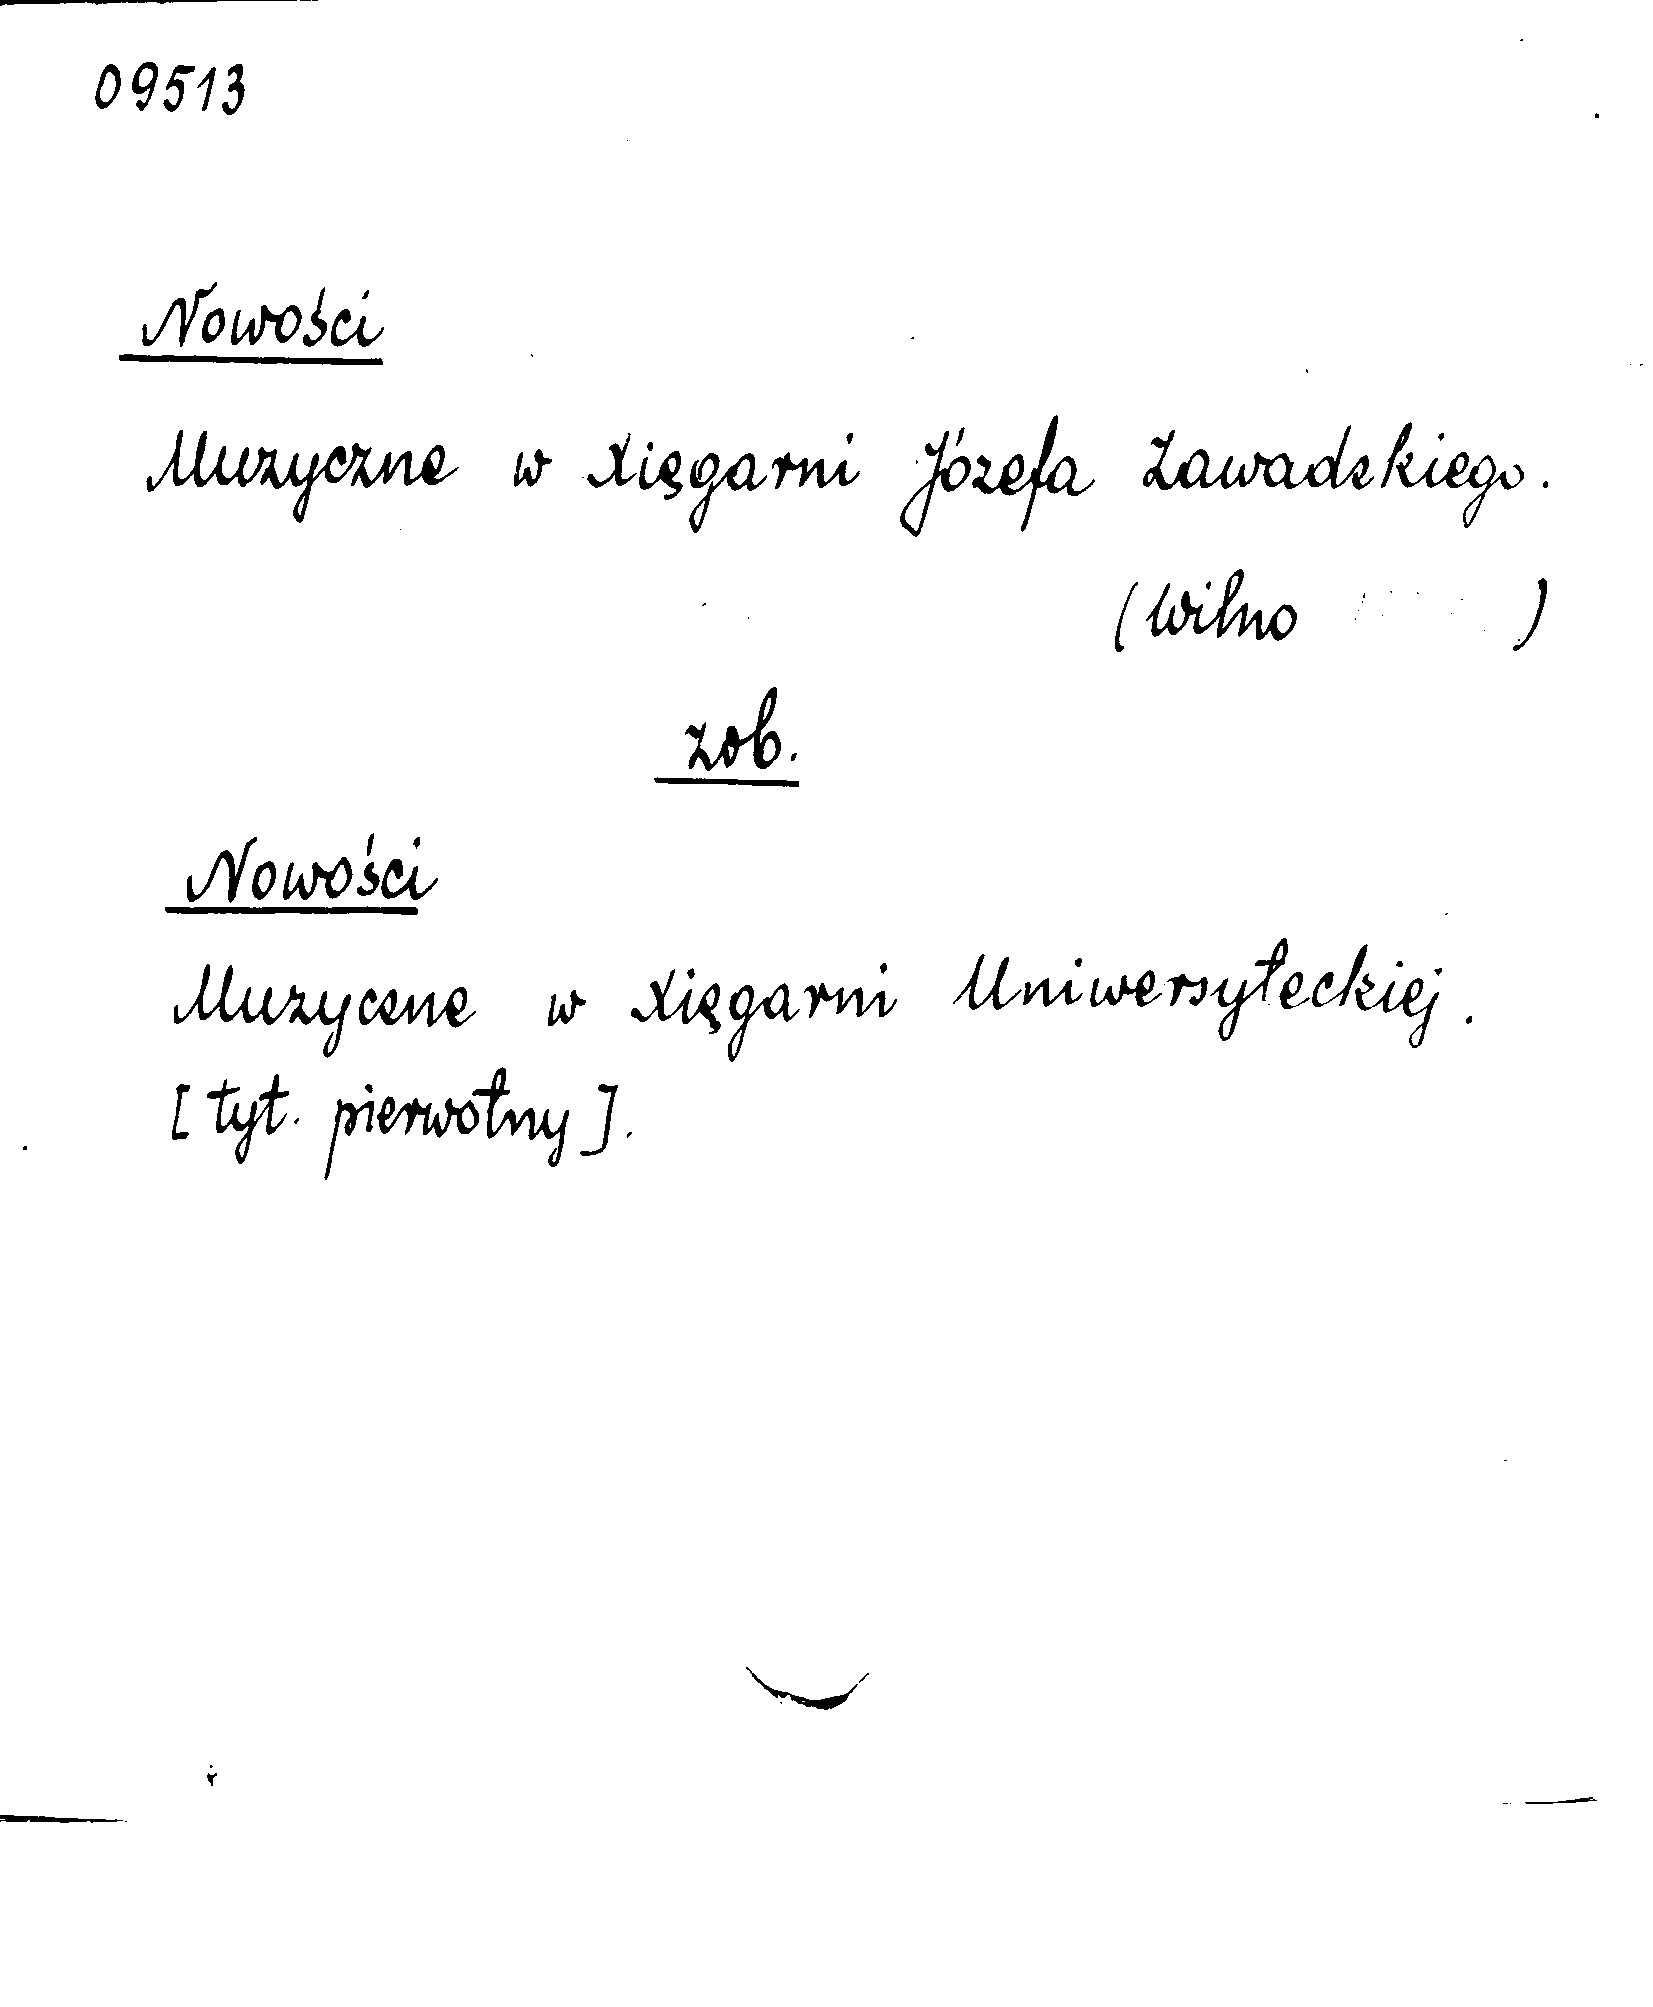 09513
Nowości
Muzyczne w Xięgarni Józefa Zawadzkiego.
(Wilno )
zob.
Nowości
Muzyczne w Xięgarni Uniwersyteckiej.
[tyt. pierwotny].